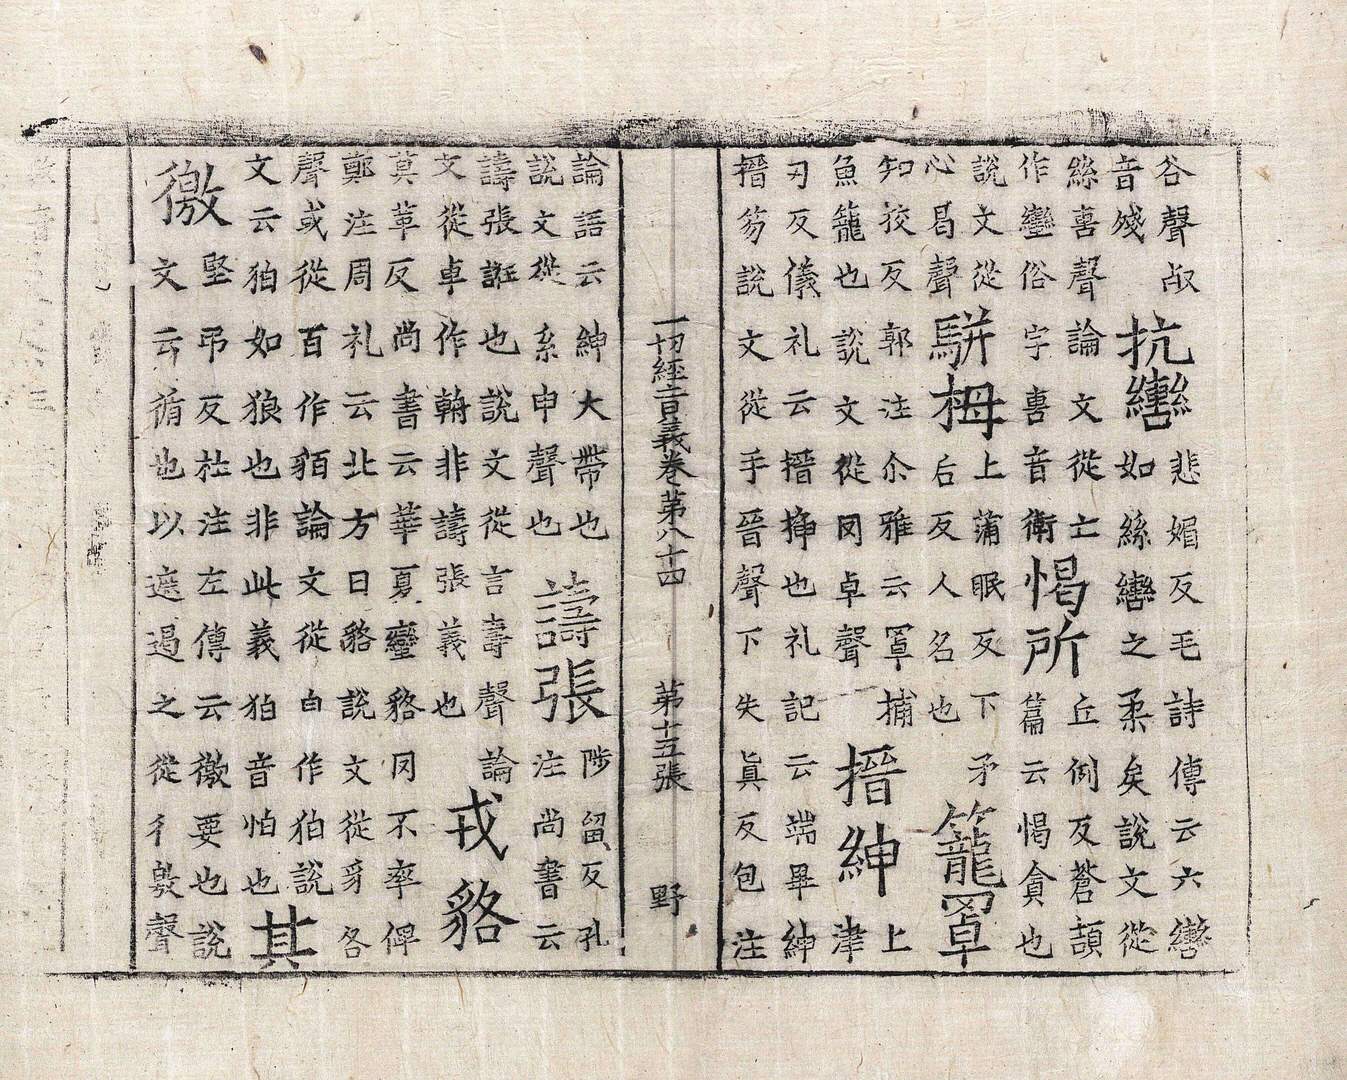 谷聲㕡
音殘
抗轡
悲媚反毛詩傳云六轡
如絲轡之柔矣說文從
絲軎聲論文從亡
作䜌俗字軎音衛
愒所
丘例反蒼頡
篇云愒貪也
說文從
心曷聲
駢拇
上蒲眠反下矛
后反人名也
籠罩
上
知挍反郭注尒雅云罩捕
魚籠也說文從罔卓聲
搢紳
上
津
刃反儀礼云搢插也礼記云端畢紳
搢笏說文從手晉聲下失真反包注
一切經音義卷第八十四 第十五張 野
論語云紳大帶也
說文從糸申聲也
譸張
陟留反孔
注尚書云
譸張誑也說文從言壽聲論
文從卓作輈非譸張義也
戎貉
莫革反尚書云華夏蠻貉罔不率俾
鄭注周礼云北方曰貉說文從豸各
聲或從百作貊論文從白作狛說
文云狛如狼也非此義狛音怕也
其
徼
堅弔反杜注左傳云徼要也說
文云循也以遮遏之從彳敫聲